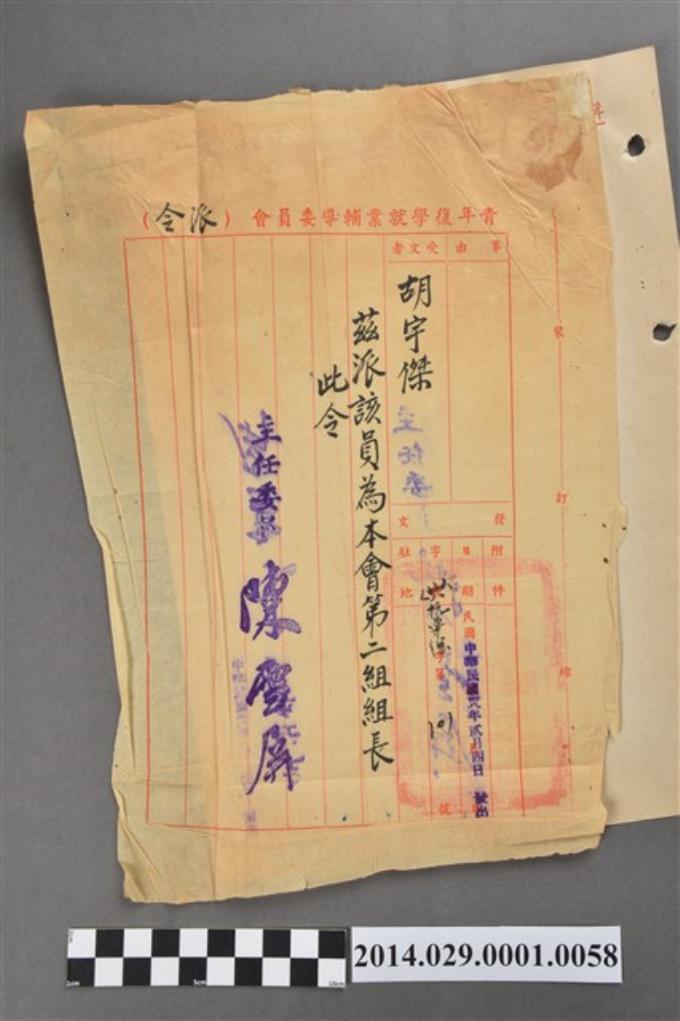 青年復學就業輔導委員會（派令）
事由
受文者
胡宇傑
發文
附件
日期
字
駐地
民國
中華民國卅八年貳月四日 發出
字第
101
號
茲派該員為本會第二組組長
此令
主任委員 陳雪屏
裝
訂
線
2014.029.0001.0058